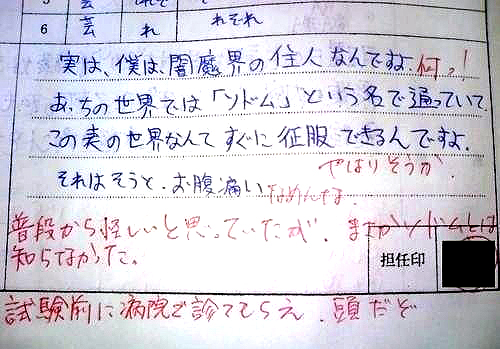 5 芸
6 芸 れ れそれ
実は、僕は、闇魔界の住人なんですね。何っ!
あっちの世界では「ソドム」という名で通っていて、
この表の世界なんてすぐに征服できるんですよ。
やはりそうか.
それはそうと、お腹痛い なめんなよ
普段から怪しいと思っていたが、まさかソドムとは
知らなかった。
担任印
試験前に病院で診てもらえ.頭だぞ